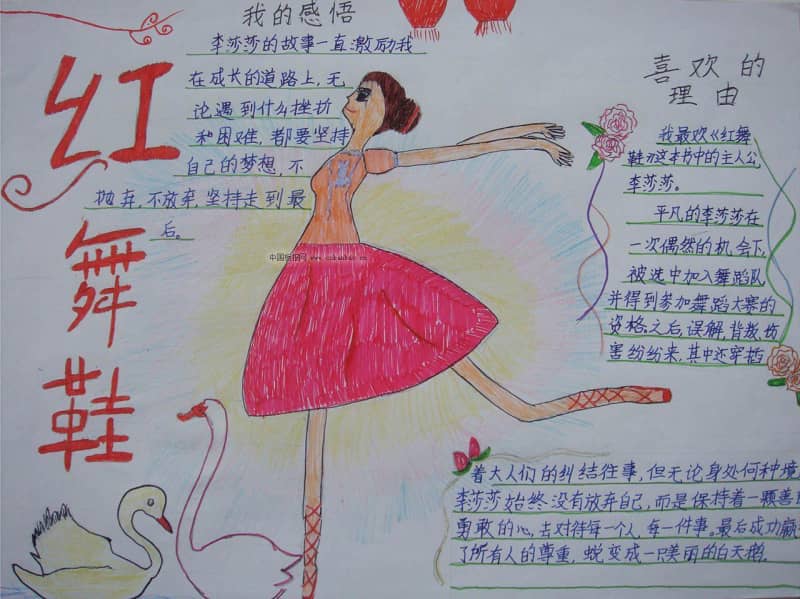 红舞鞋
我的感悟
李莎莎的故事一直激励我
在成长的道路上,无
论遇到什么挫折
和困难,都要坚持
自己的梦想,不
抛弃,不放弃,坚持走到最
后。
喜欢的
理由
我最欢《红舞
鞋》这本书中的主人公
李莎莎。
平凡的李莎莎在
一次偶然的机会下,
被选中加入舞蹈队
并得到参加舞蹈大赛的
资格。之后,误解,背叛,伤
害纷纷来,其中还穿插
着大人们的纠结往事,但无论身处何种境
李莎莎始终没有放弃自己,而是保持着一颗善
勇敢的心,去对待每一个人,每一件事。最后成功赢
了所有人的尊重,蜕变成一只美丽的白天鹅.
中国板报网